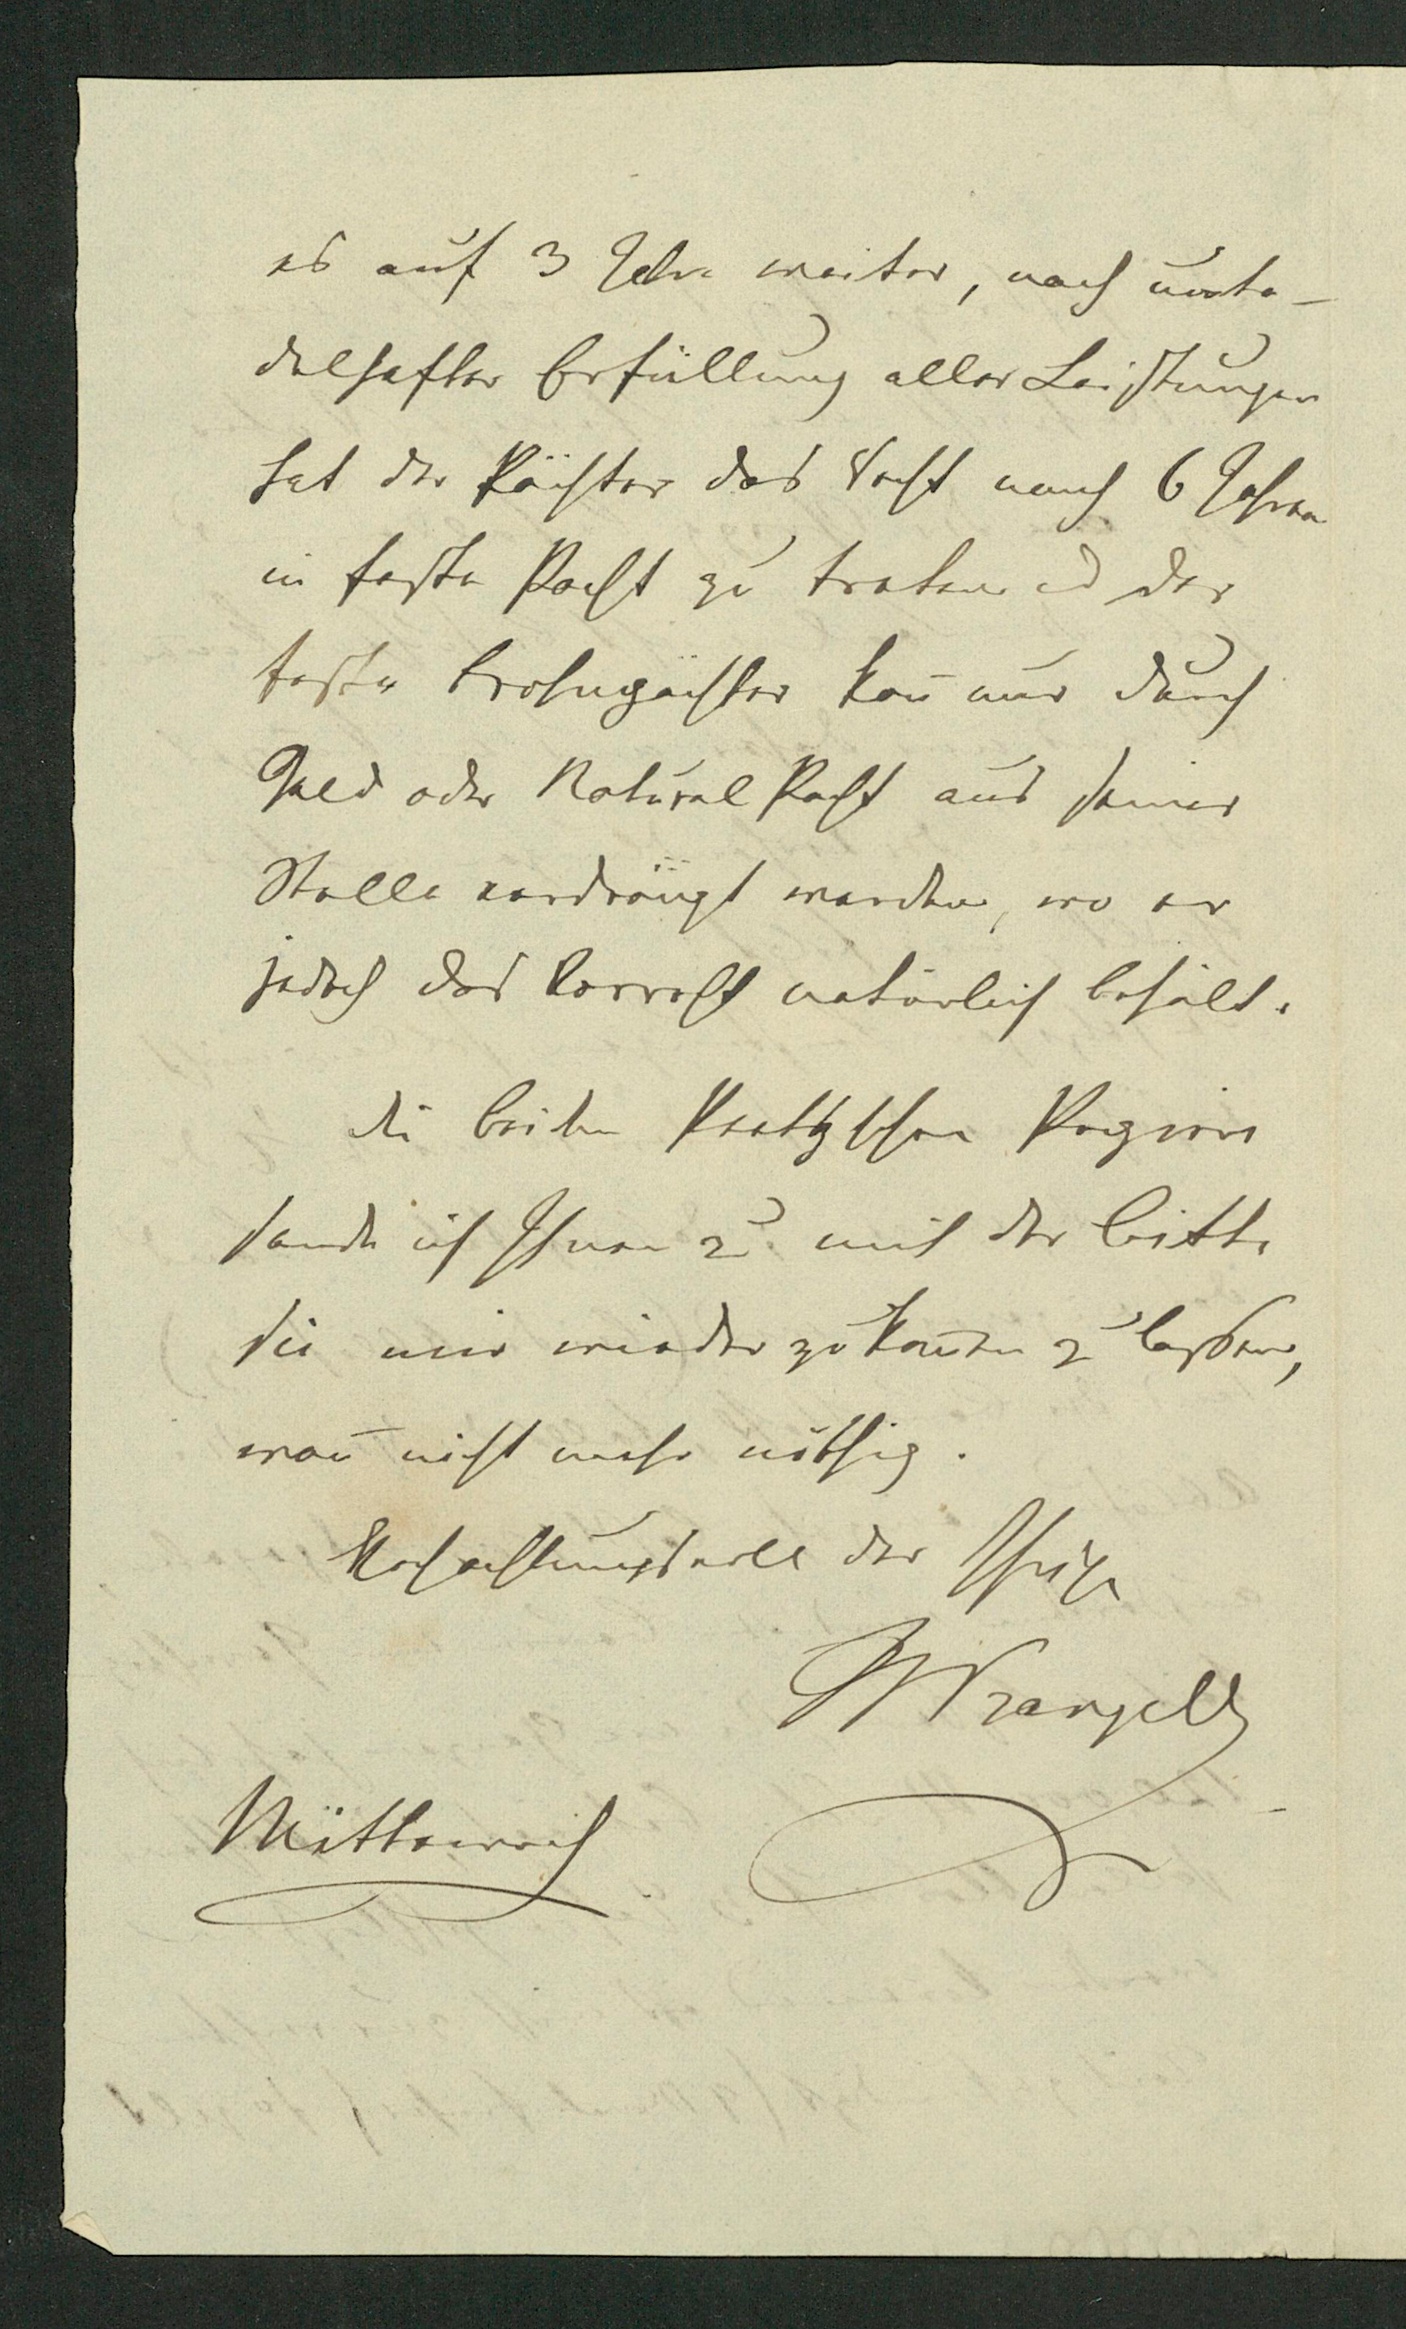 es auf 3 Jahre weiter, nach unta-
delhafter Erfüllung aller Leistungen
hat der Pächter das Recht nach 6 Jahren
in feste Pacht zu treten u der
feste Frohnpächter kan̄ nur durch
Geld oder Natural Pacht aus seiner
Stelle verdrängt werden, wo er
jedoch das Vorrecht natürlich behält.
die beiden
sende ich Ihnen zu mit der Bitte
sie mir wieder zukom̄en zu lassen,
wen̄ nicht mehr nöthig.
Hochachtungsvoll der Ihrige
Wrangell
Mittwoch